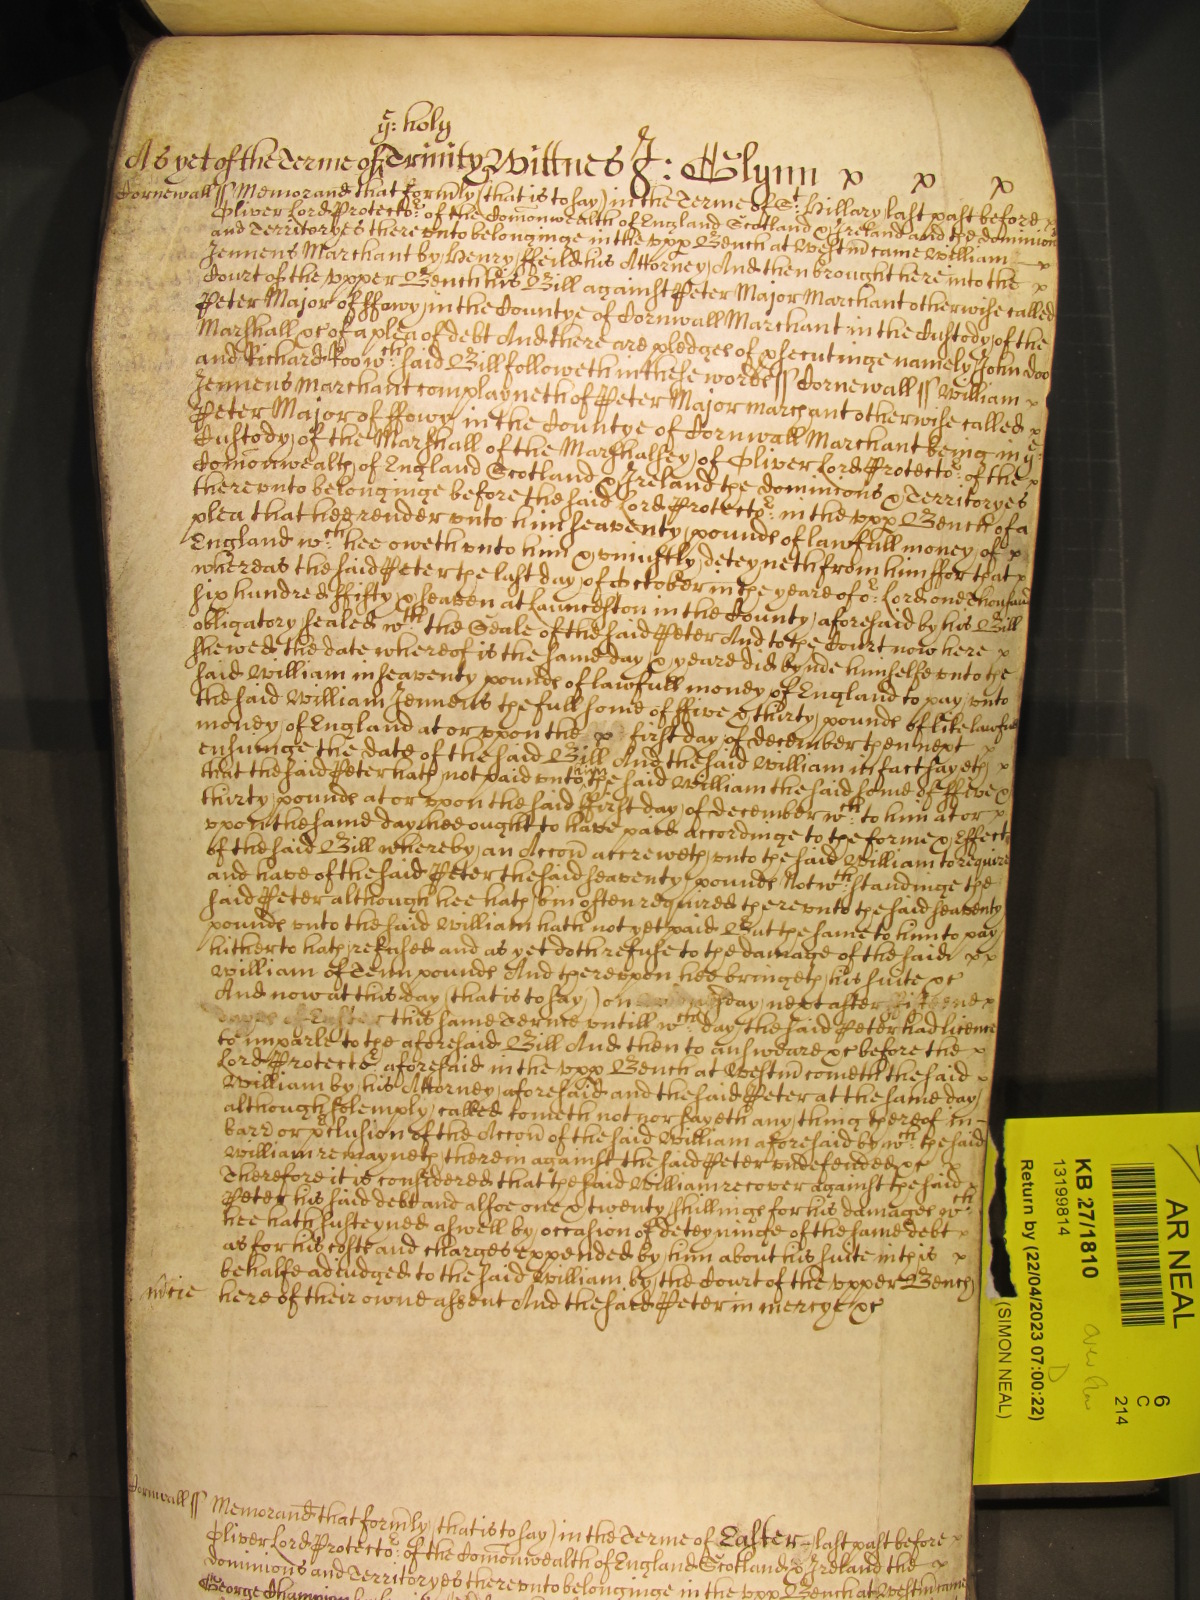 yͤ: holy
As yet of the Terme of Trinity Wittnes J: Glynn x x x
Cornewall ss Memorand that formly (that is to say) in the Terme of St: Hillary last past before x
Oliver Lord Protector: of the Comonwealth of England Scotland & Ireland and the dominions
and Territoryes there vnto belonginge in the vpp Bench at Westm came William — x
Jennens Marchant by Henry ffeild his Attorney, And then brought here into the x
Court of the vpper Bench his Bill against Peter Major Marchant otherwise called
Peter Major of ffowy in the Countye of Cornwall Marchant in the Custody of the
Marshall &c of a plea of debt And there are pledges of psecutinge namely John Doo
and Richard Roo wch: said Bill followeth in these words ss Cornewall ss William x
Jennens Marchant complayneth of Peter Major marchant otherwise called x
Peter Major of ffowy in the Countye of Cornwall Marchant being in yͤ:
Custody of the Marshall of the Marshalsey of Oliver Lord Protector: of the x
Comonwealth of England Scotland & Ireland the dominions & Territoryes
there vnto belonginge before the said Lord Protector: in the vpp Bench of a
plea that hee render vnto him seaventy pounds of lawfull money of x
England wch: hee oweth vnto him & vniustly deteyneth from him ffor that x
whereas the said Peter the last day of October in the yeare of or: Lord one thousand
six hundred ffifty & seaven at Launceston in the County aforesaid by his Bill
obligatory sealed wth: the Seale of the said Peter And to the Court now here x
shewed the date whereof is the same day & yeare did bynde himselfe vnto the
said William in seaventy pounds of lawfull money of England to pay vnto
the said William Jennens the full some of ffive & thirty pounds of like lawfull
money of England at or vpon the x first day of december then next x
ensuinge the date of the said Bill And the said William in fact sayeth x
that the said Peter hath not paid vnto him the said William the said some of ffive &
thirty pounds at or vpon the said ffirst day of december wch: to him at or x
vpon the same day hee ought to have paid accordinge to the forme & Effect
of the said Bill whereby an Accon accreweth vnto the said William to require
and have of the said Peter the said seaventy pounds Notwthstandinge the
said Peter although hee hath bin often required there vnto the said seaventy
pounds vnto the said William hath not yet paid But the same to him to pay
hitherto hath refused and as yet doth refuse to the damage of the said xx
William of Tenn pounds And therevpon hee bringeth his suite &c
And now at this day (that is to say) on day next after x
this same Terme vntill wch day the said Peter had licence
to imparle to the aforesaid Bill And then to answeare &c before the x
Lord Protector aforesaid in the vpp Bench at Westm cometh the said x
William by his Attorney aforesaid and the said Peter at the same day
although solemply called cometh not nor sayeth any thing thereof in-
barr or pclusion of the Accon of the said William aforesaid by wch: the said
William remayneth therein against the said Peter vndefended &c x
Therefore it is considered that the said William recover against the said x
Peter his said debt and alsoe one & twenty shillings for his damages wch:
hee hath susteyned aswell by occasion of deteyninge of the same debt x
as for his costs and charges expended by him about his suite in this x
behalfe adiudged to the said William by the Court of the vpper Bench
mcie here of their owne assent And the said Peter in mercye &c
Cornwall ss Memorand that formly (that is to say) in the Terme of Easter last past before x
Oliver Lord Protector: of the Comonwealth of England Scotland & Ireland the x
dominions and Territoryes there vnto belonginge in the vpp Bench at Westm came
George Champion
AR NEAL
6
C
214
KB 27/1810
13199814
Return by (22/04/2023 07:00:22)
(SIMON NEAL)